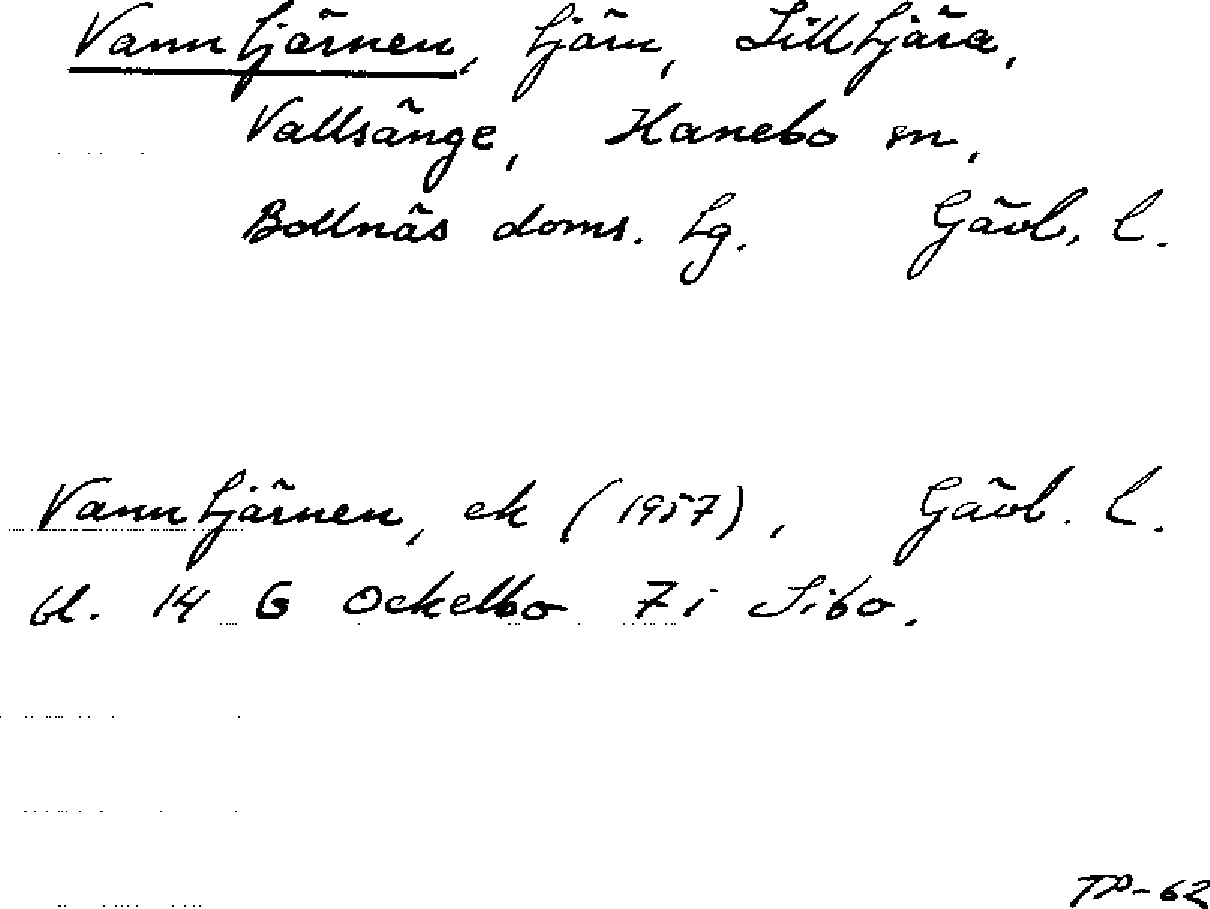 Vanntjärnen, tjärn, Lilltjära,
Vallsänge, Hanebo sn,
Bollnäs doms. tg. Gävl. l.
Vanntjärnen, ek (1957), Gävl. l.
bl. 14 G Ockelbo 7 i Sibo.
TP-62